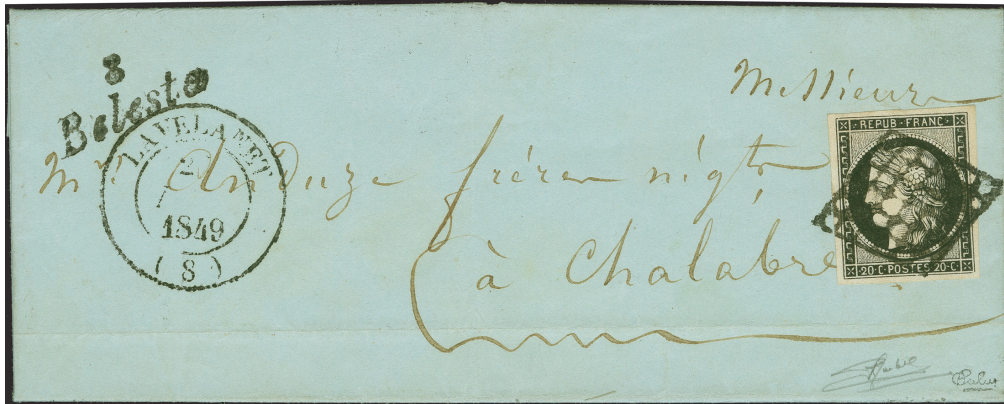 8
Belesta
LAVELANET
2
1849
(8)
Messieurs
Mrs Anduze frères négts
à Chalabre
REPUB·FRANC·
20·C·POSTES·20·C·